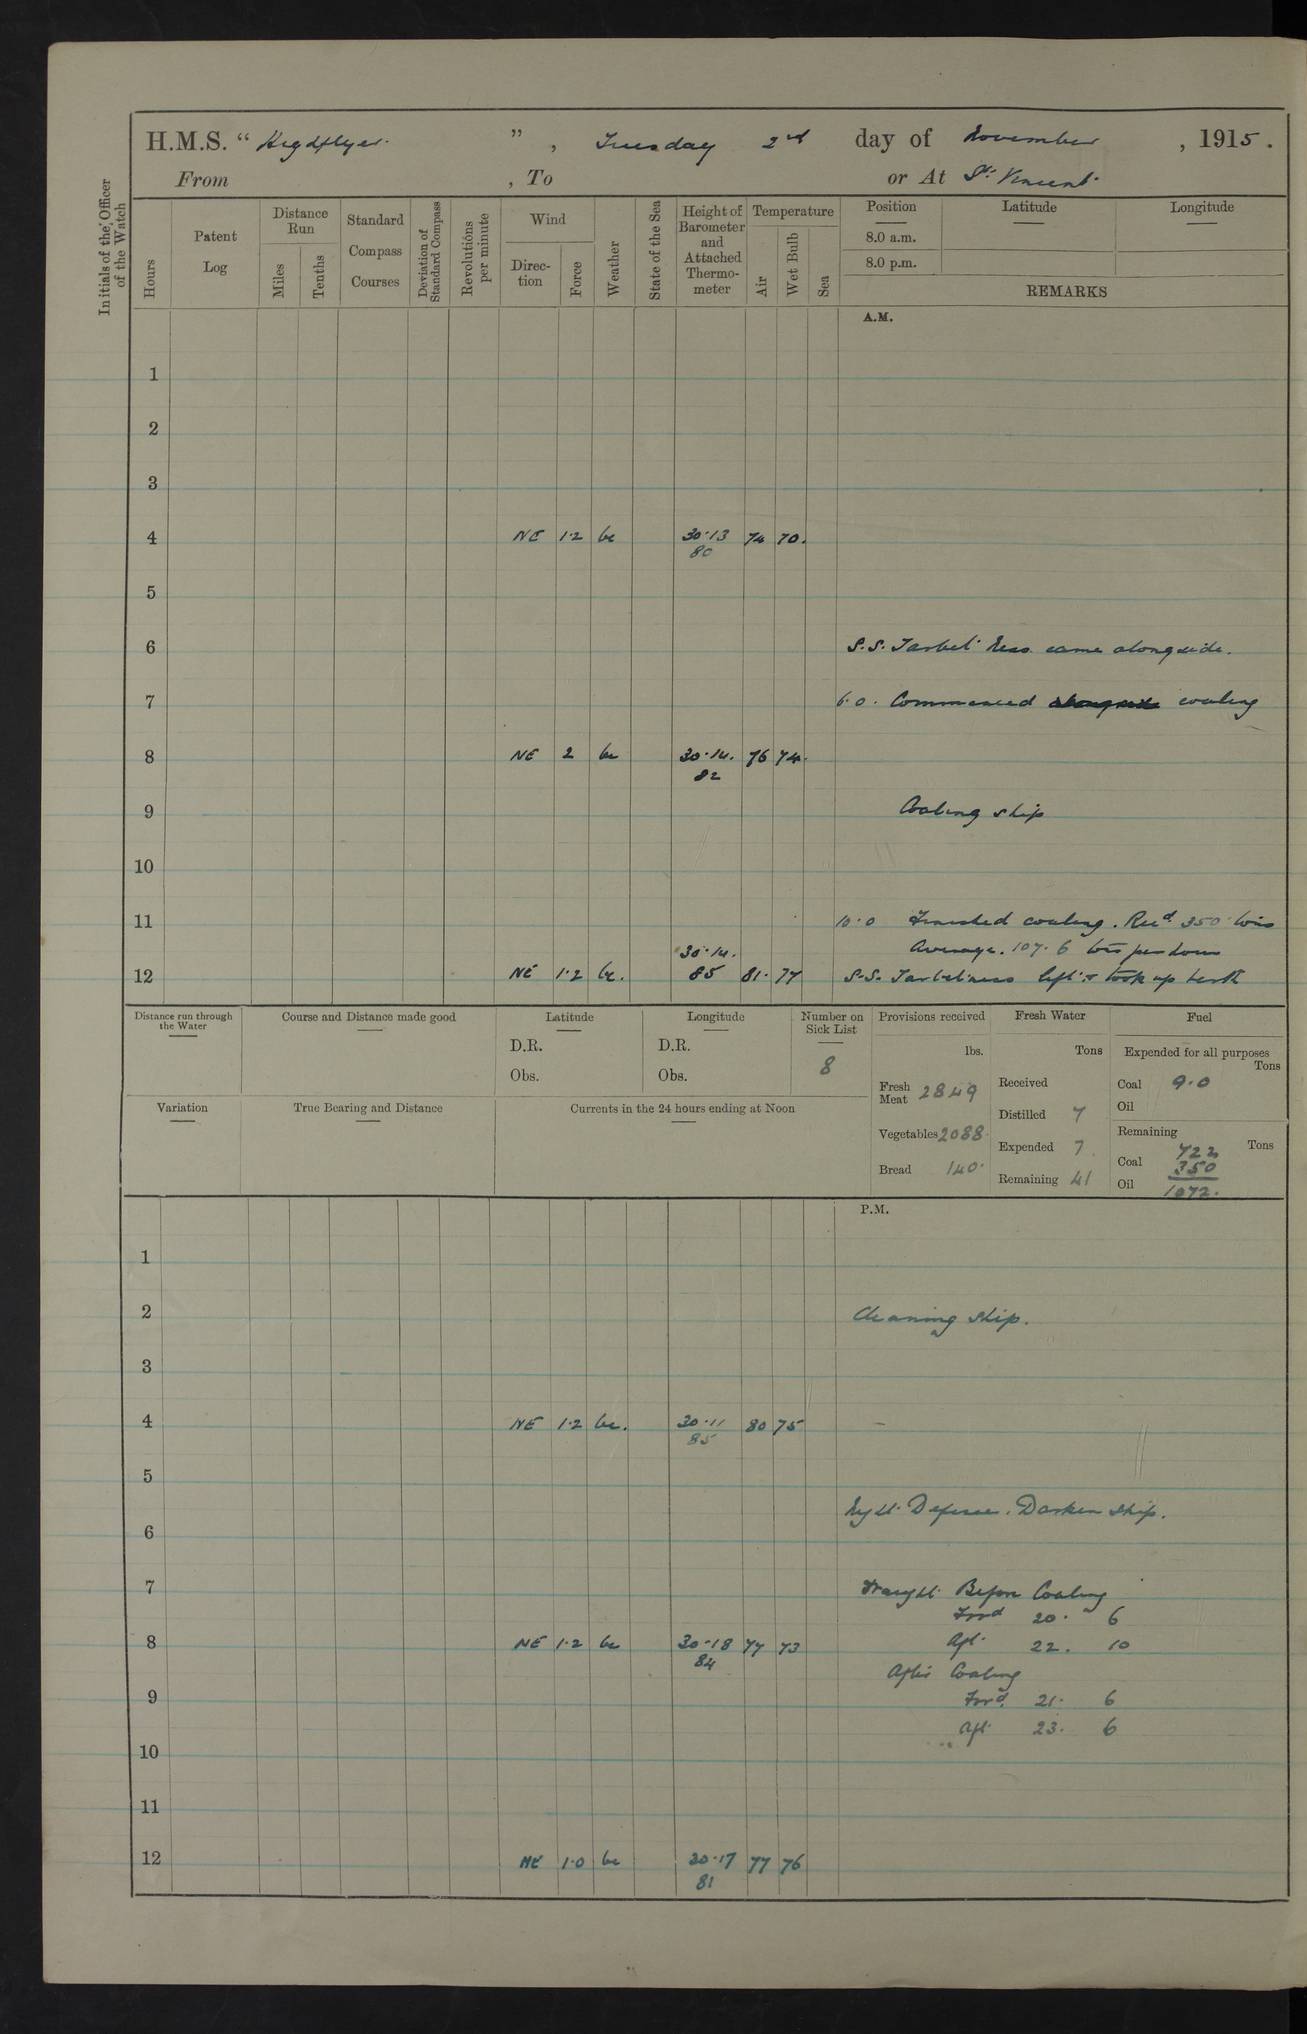 H.M.S. " Highflyer. ", Tuesday 2nd day of November, 1915.
From , To or At St. Vincent.
Initials of the Officer of the Watch
Hours
Patent Log
Distance Run
Miles
Tenths
Standard Compass Courses
Deviation of Standard Compass
Revolutions per minute
Wind
Direction
Force
Weather
State of the Sea
Height of Barometer and Attached Thermometer
Temperature
Air
Wet Bulb
Sea
Position Latitude Longitude
8.0 a.m.
8.0 p.m.
REMARKS
A.M.
1
2
3
4 NE 1·2 bc 30·13 74 70.
80
5
6 S.S. Tarbet Ness came alongside.
7 6·0. Commenced coaling
8 NE 2 bc 30·14. 76 74.
82
9 Coaling ship
10
11 10·0 Finished coaling. Recd. 350 tons
30·14. Average. 107·6 tons per hour
12 NE 1·2 bc. 85 81. 77 S.S. Tarbetness left & took up berth
Distance run through the Water
Course and Distance made good
Latitude
D.R.
Obs.
Longitude
D.R.
Obs.
Number on Sick List
8
Provisions received
lbs.
Fresh Meat 2849
Vegetables 2088
Bread 140.
Fresh Water
Tons
Received
Distilled 7
Expended 7
Remaining 41
Fuel
Expended for all purposes
Tons
Coal 9·0
Oil
Remaining
Tons
722
Coal 350
Oil 1072.
Variation
True Bearing and Distance
Currents in the 24 hours ending at Noon
P.M.
1
2 Cleaning ship.
3
4 NE 1·2 bc. 30·11 80 75
85
5
Night Defence. Darken ship.
6
7 Draught Before Coaling
Ford 20. 6
8 NE 1·2 bc 30·18 77 73 Aft. 22. 10
84
After Coaling
9 Ford. 21. 6
Aft 23. 6
10
11
12 NE 1·0 bc 30·17 77 76
81